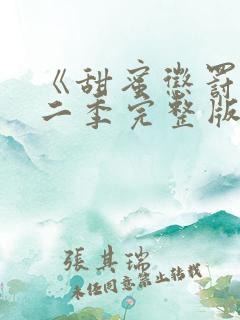 《甜蜜懲罰
二季完整版
張其瑞
未经同意禁止转载